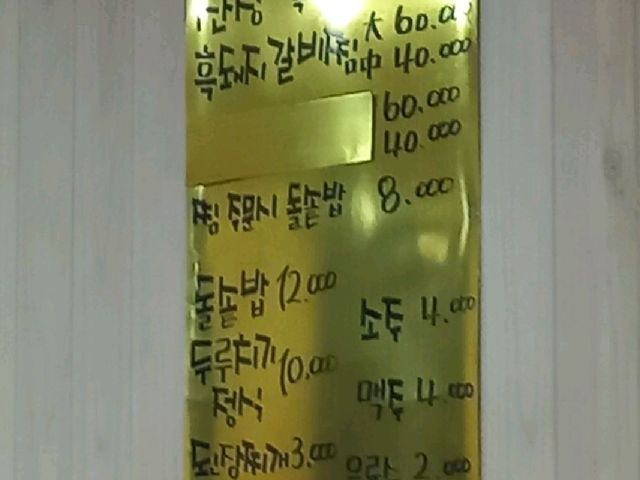 大 60.000
흑돼지갈비찜 中 40.000
60.000
40.000
찜 주문시 돌솥밥 8.000
돌솥밥 12.000
소주 4.000
두루치기 정식 10.000
맥주 4.000
된장찌개 3.000
음료 2.000